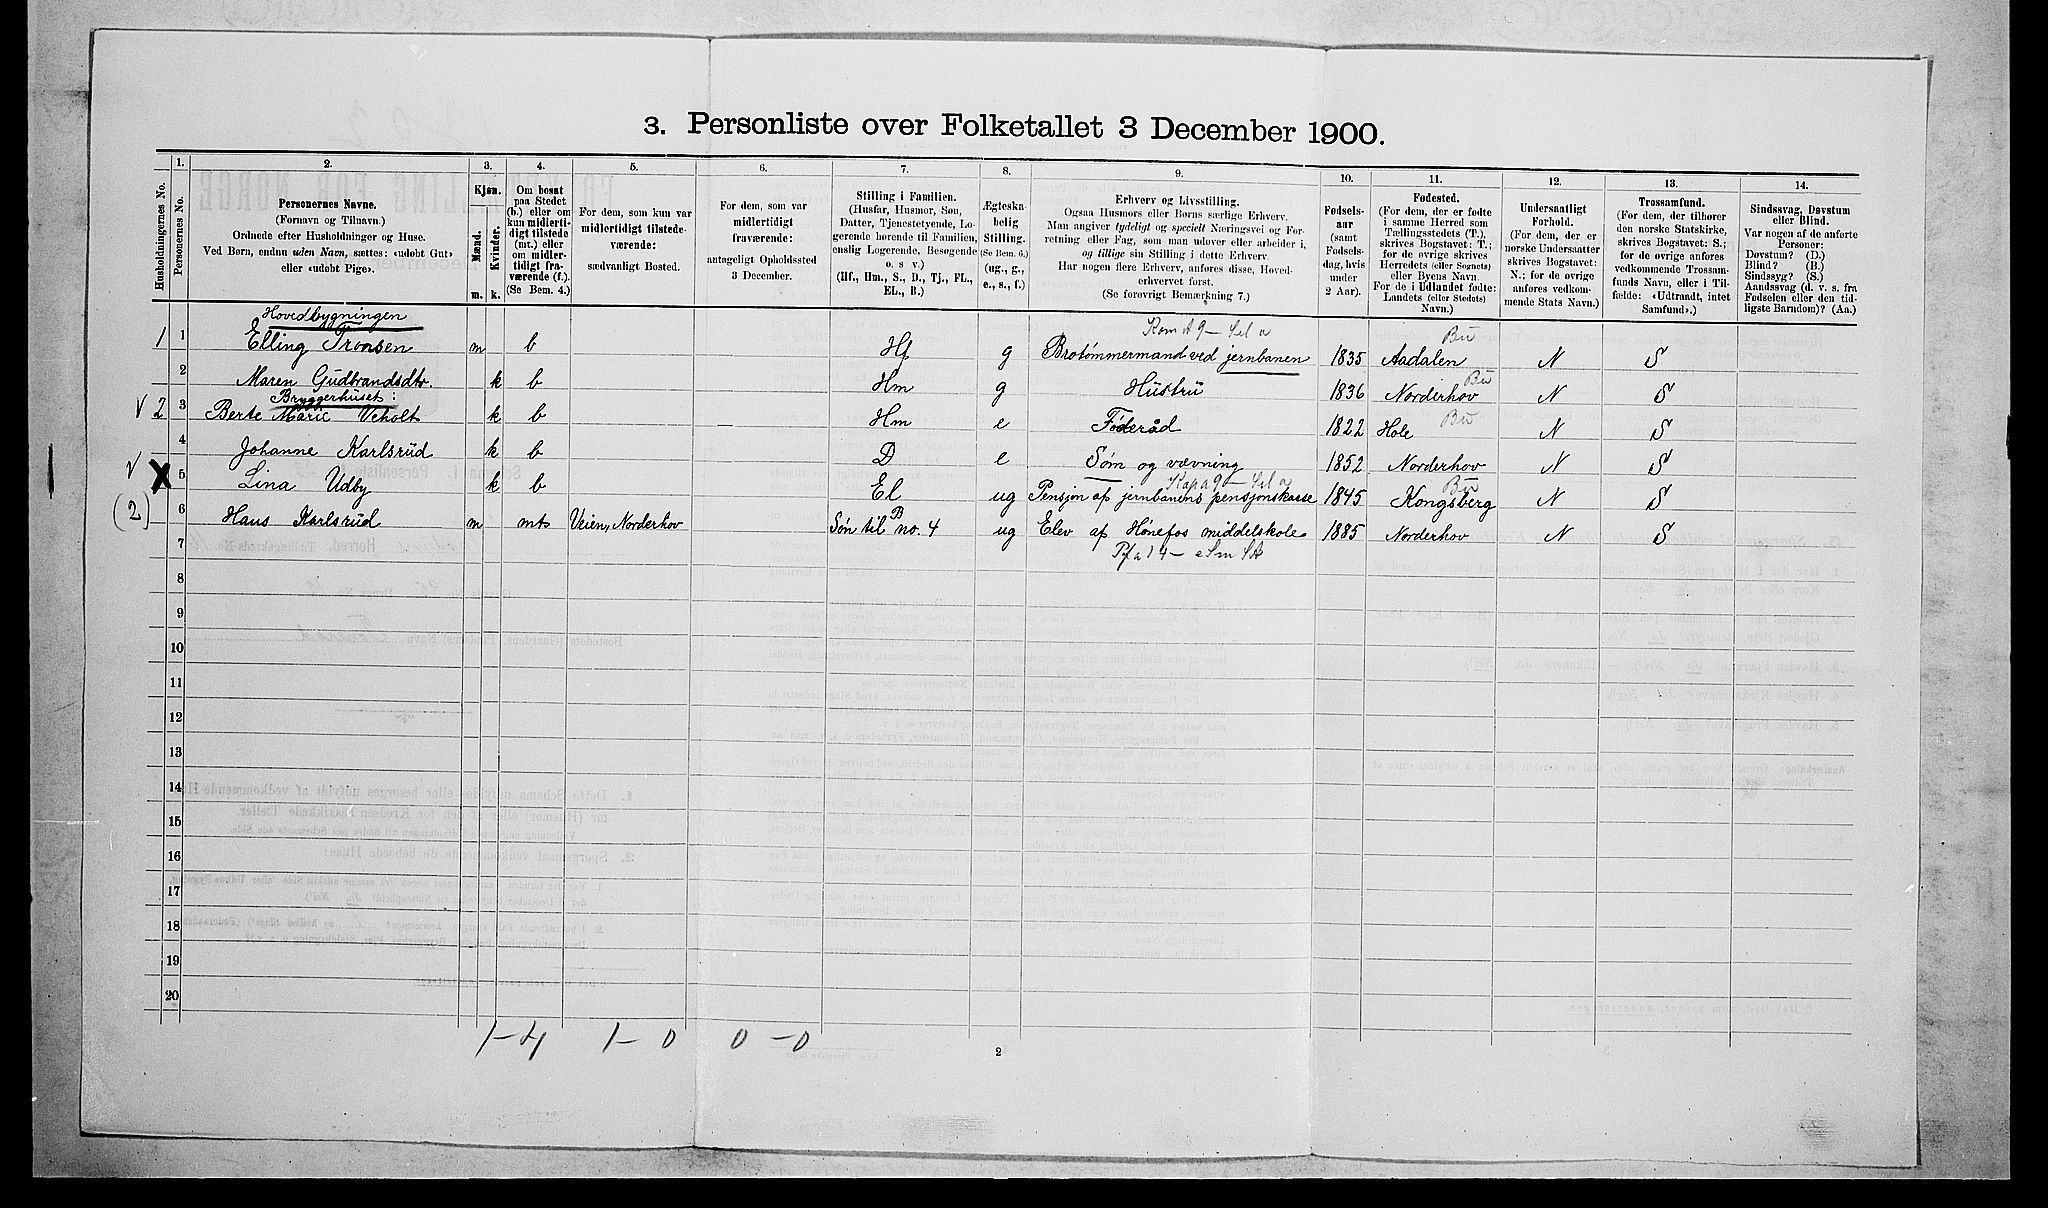 3. Personliste over Folketallet 3 December 1900.
1. 2. 3. 4. 5. 6. 7. 8. 9. 10. 11. 12. 13. 14.
Husholdningernes No.
Personernes No.
Personernes Navne.
(Fornavn og Tilnavn.)
Ordnede efter Husholdninger og Huse.
Ved Børn, endnu uden Navn, sættes: «udøbt Gut»
eller «udøbt Pige».
Kjøn.
Mænd.
Kvinder.
m. k.
Om bosat
paa Stedet
(b.) eller om
kun midlerti-
digt tilstede
(mt.) eller
om midler-
tidigt fra-
værende (f.).
(Se Bem. 4.)
For dem, som kun var
midlertidigt tilstede-
værende:
sædvanligt Bosted.
For dem, som var
midlertidigt
fraværende:
antageligt Opholdssted
3 December.
Stilling i Familien.
(Husfar, Husmor, Søn,
Datter, Tjenestetyende, Lo-
gerende hørende til Familien,
enslig Logerende, Besøgende
o. s. v.)
(Hf., Hm., S., D., Tj., FL.,
EL., B.)
Ægteska-
belig
Stilling.
(Se Bem. 6.)
(ug., g.,
e., s., f.)
Erhverv og Livsstilling.
Ogsaa Husmors eller Børns særlige Erhverv.
Man angiver tydeligt og specielt Næringsvei og For-
retning eller Fag, som man udover eller arbeider i,
og tillige sin Stilling i dette Erhverv.
Har nogen flere Erhverv, anføres disse, Hoved-
erhvervet først.
(Se forøvrigt Bemærkning 7.)
Fødsels-
aar
(samt
Fødsels-
dag, hvis
under
2 Aar).
Fødested.
(For dem, der er fødte
i samme Herred som
Tællingsstedets (T.),
skrives Bogstavet: T.;
for de øvrige skrives
Herredets (eller Sognets)
eller Byens Navn.
For de i Udlandet fødte:
Landets (eller Stedets)
Navn.)
Undersaatligt
Forhold.
(For dem, der er
norske Undersaatter
skrives Bogstavet:
N.; for de øvrige
anføres vedkom-
mende Stats Navn.)
Trossamfund.
(For dem, der tilhører
den norske Statskirke,
skrives Bogstavet: S.;
for de øvrige anføres
vedkommende Trossam-
funds Navn, eller i Til-
fælde: «Udtraadt, intet
Samfund».)
Sindssvag, Døvstum
eller Blind.
Var nogen af de anførte
Personer:
Døvstum? (D.)
Blind? (B.)
Sindssyg? (S.)
Aandssvag (d. v. s. fra
Fødselen eller den tid-
ligste Barndom)? (Aa.)
Hovedbygningen
1 1 Elling Tronsen m b Hf g Brotømmermand ved jernbanen 1835 Aadalen Bu N S
2 Maren Gudbrandsdtr. k b Hm g Hustru 1836 Norderhov Bu N S
Bryggerhuset:
2 3 Berte Marie Veholt k b Hm e Føderåd 1822 Hole Bu N S
4 Johanne Karlsrud k b D e Søm og vævning 1852 Norderhov N S
X 5 Lina Udby k b El ug Pensjon af jernbanens pensjonskasse 1845 Kongsberg Bu N S
(2) 6 Hans Karlsrud m mt Veien, Norderhov Søn til no. 4 B ug Elev af Hønefos middelskole 1885 Norderhov N S
7
8
9
10
11
12
13
14
15
16
17
18
19
20
1-4 1-0 0-0
2